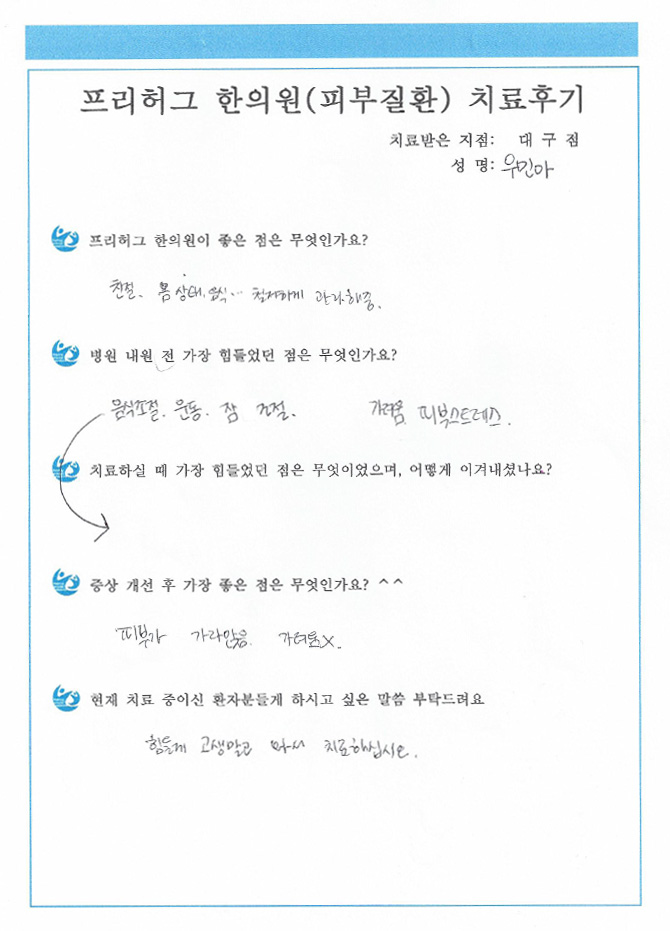 프리허그 한의원(피부질환) 치료후기
치료받은 지점: 대구점
성 명: 우민아
프리허그 한의원이 좋은 점은 무엇인가요?
친절. 몸상태, 음식... 철저하게 관리해줌.
병원 내원 전 가장 힘들었던 점은 무엇인가요?
음식조절. 운동. 잠 조절. 가려움, 피부스트레스.
치료하실 때 가장 힘들었던 점은 무엇이었으며, 어떻게 이겨내셨나요?
증상 개선 후 가장 좋은 점은 무엇인가요? ^^
피부가 가라앉음. 가려움X.
현재 치료 중이신 환자분들게 하시고 싶은 말씀 부탁드려요
힘들게 고생말고 와서 치료하십시오.